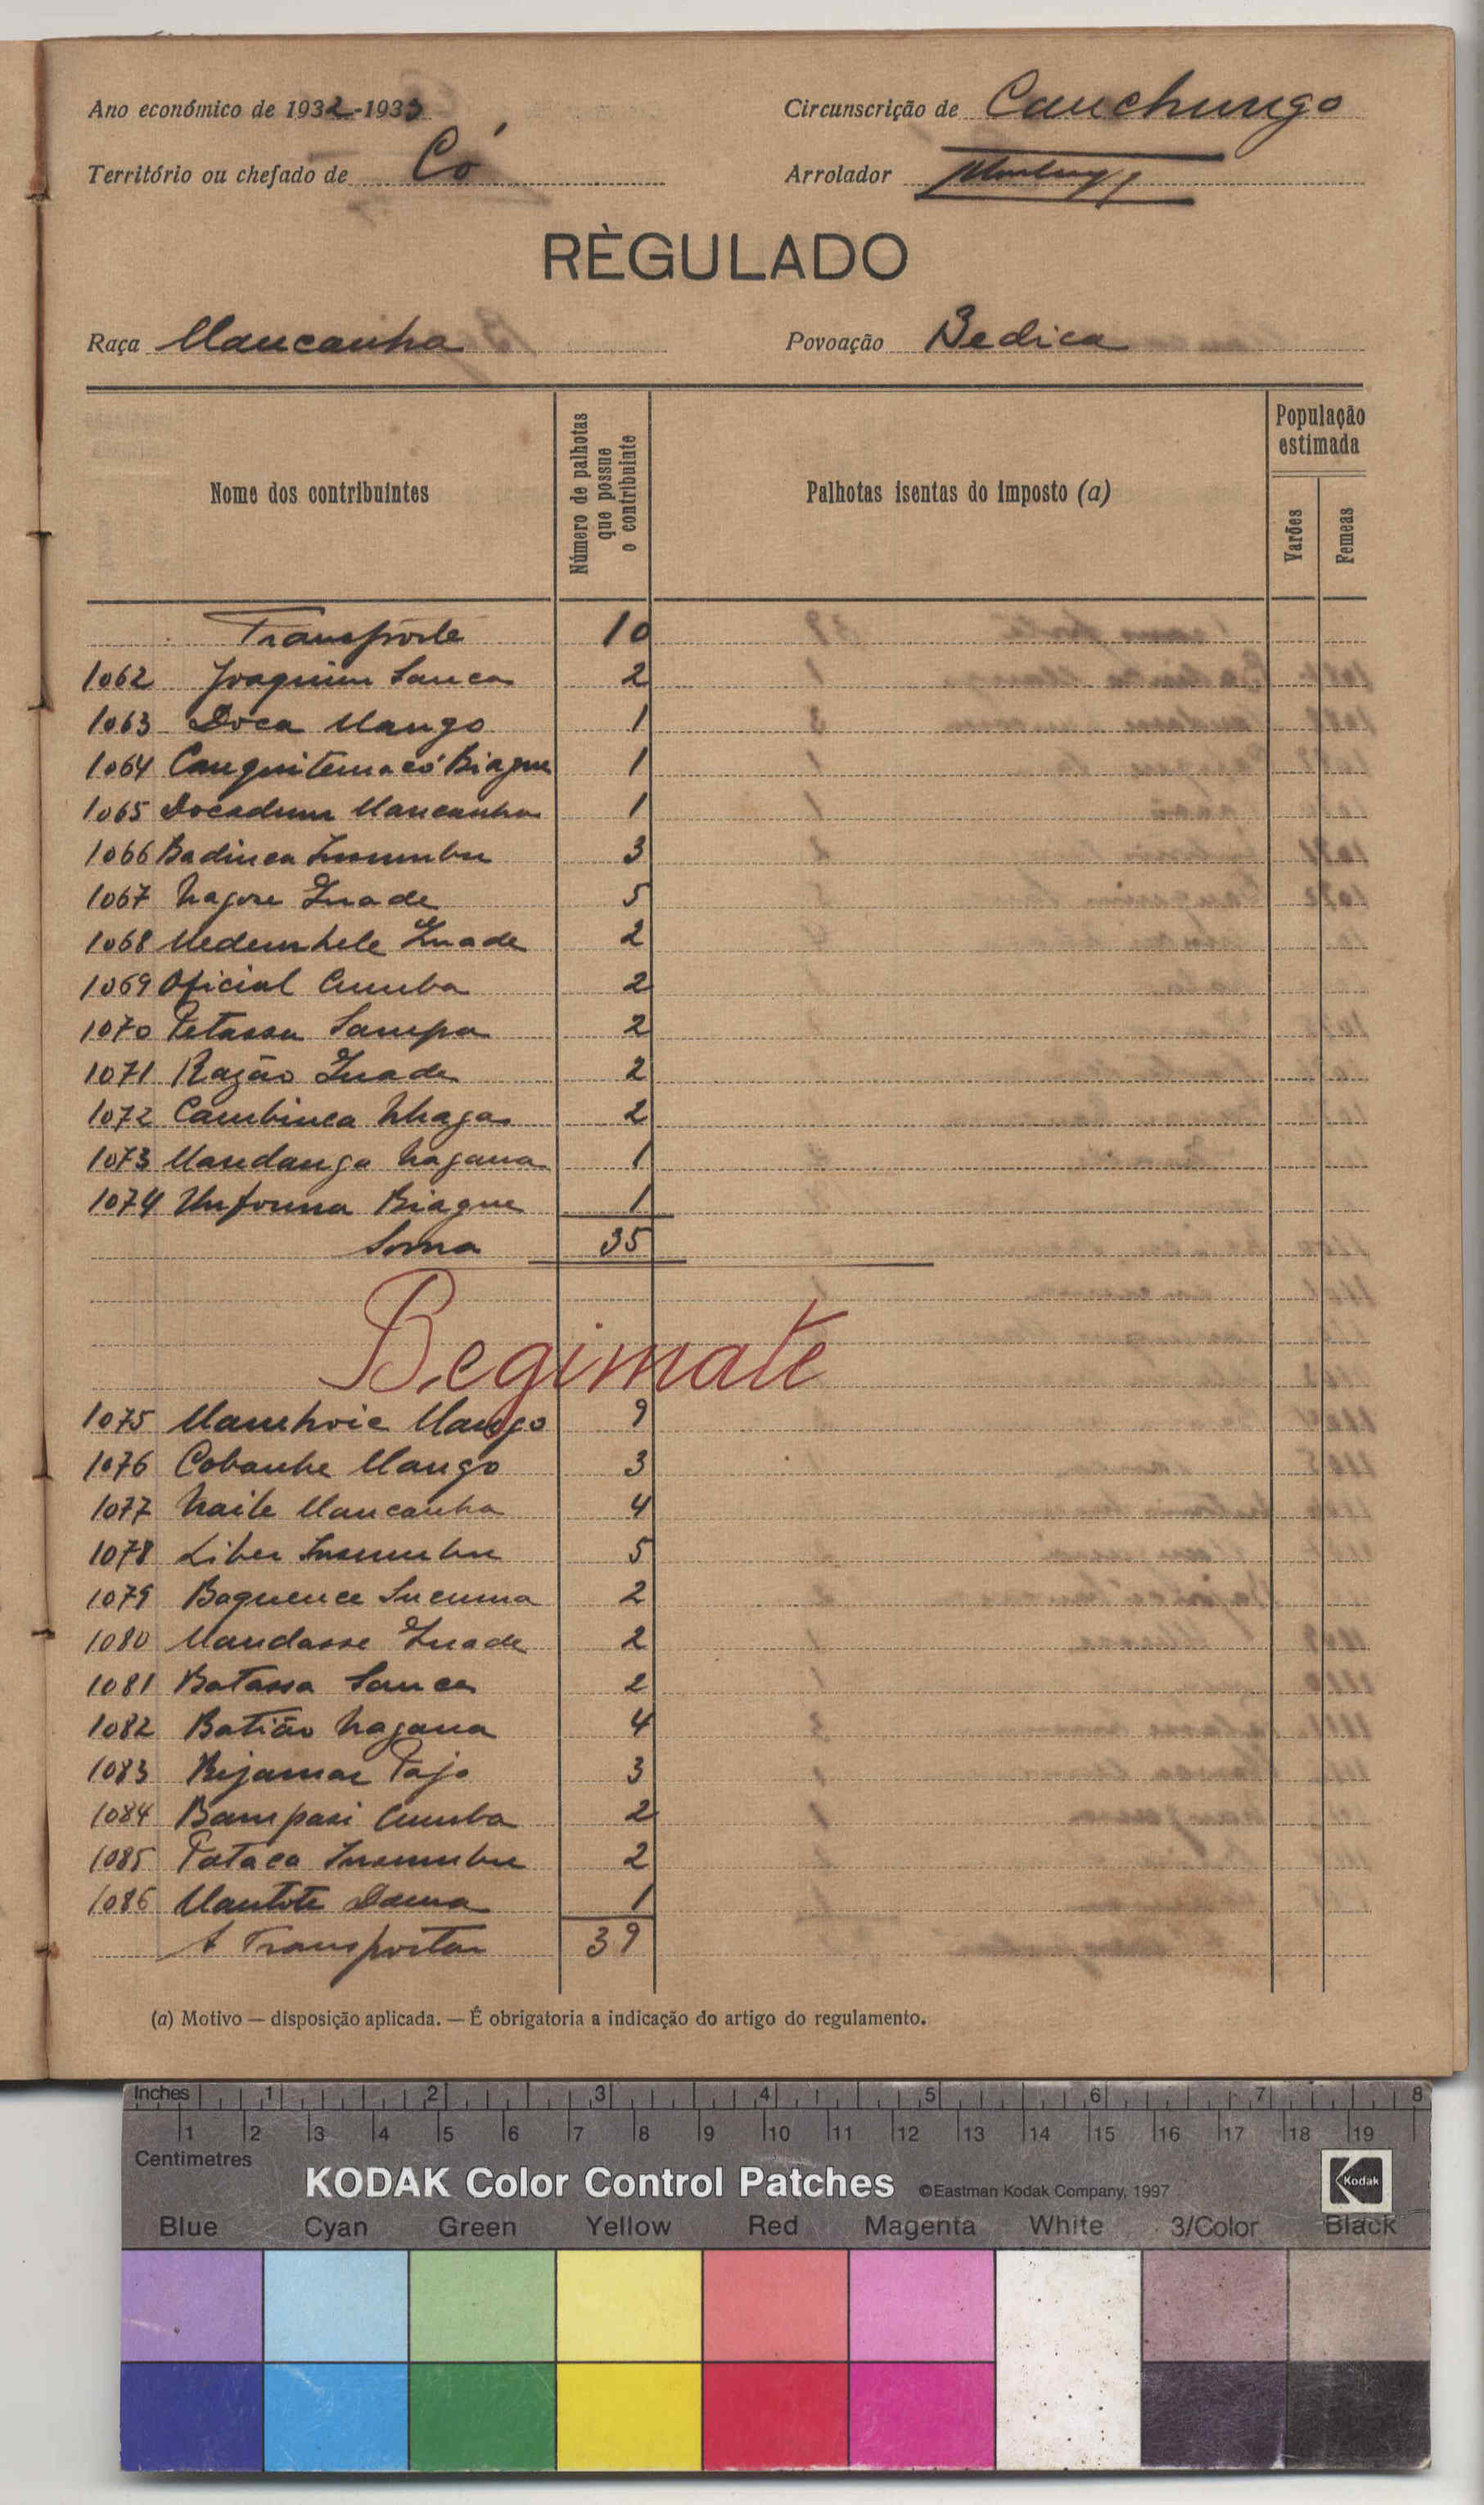 Ano económico de 1932-1933 Circunscrição de Canchungo
Território ou chefado de Có Arrolador
RÈGULADO
Raça Mancanha Povoação Bedica
Nome dos contribuintes
Número de palhotas que possue o contribuinte
Palhotas isentas do imposto (a)
População estimada
Varões
Femeas
Transporte 10
1062 Joaquim Sanca 2
1063 Doca Mango 1
1064 Biague 1
1065 Docadum Mancanha 1
1066 Badinca Insumbu 3
1067 Inade 5
1068 Inade 2
1069 Oficial Cumba 2
1070 Petassa Sampa 2
1071 Razão Inade 2
1072 Cambinca Nhaga 2
1073 Mandanga Nagana 1
1074 Biague 1
Soma 35
Begimate
1075 Manhoie Mango 9
1076 Cobanhe Mango 3
1077 Naile Mancanha 4
1078 Liber Insumbu 5
1079 Baquence Incuma 2
1080 Mandasse Inade 2
1081 Batassa Sanca 2
1082 Batião Nagana 4
1083 Bijamar 3
1084 Bampasi Cumba 2
1085 Pataca Insumbu 2
1086 Mantote Dama 1
A Transportar 39
(a) Motivo — disposição aplicada. — É obrigatoria a indicação do artigo do regulamento.
Inches 1 2 3 4 5 6 7 8
1 2 3 4 5 6 7 8 9 10 11 12 13 14 15 16 17 18 19
Centimetres
KODAK Color Control Patches ©Eastman Kodak Company, 1997 Kodak
Blue Cyan Green Yellow Red Magenta White 3/Color Black